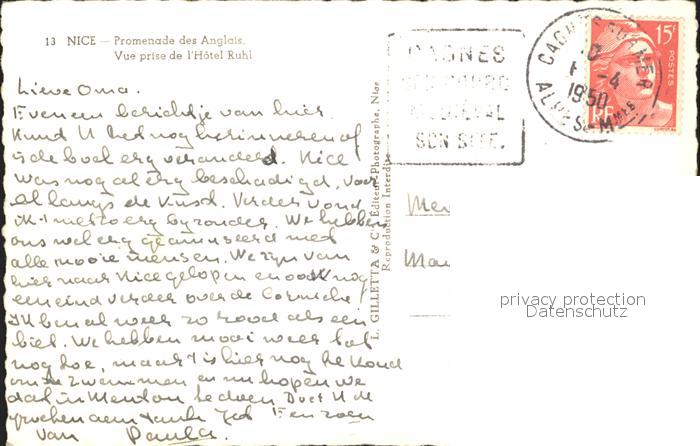 13 NICE — Promenade des Anglais.
Vue prise de l'Hôtel Ruhl
Lieve Oma.
Even een berichtje van hier.
Kunt U het nog herinneren of
is de boel erg veranderd. Nice
was nogal erg beschadigd, voor
al langs de kust. Verder vond
ik 't niet zo erg byzonder. We hebben
ons wel erg geamuseerd met
alle mooie mensen. We zyn van
hier naar Nice gelopen en ook nog
een eind verder over de Corniche
Ik ben al weer zo rood als een
biet. We hebben mooi weer tot
nog toe, maar 't is hier nog te koud
om te zwemmen en nu hopen we
dat in Menton te doen. Doet U de
groeten aan tante Jet Een zoen
van Paula.
L. GILLETTA & Cie Éditeur-Photographe, Nice
Reproduction Interdite
CAGNES
SON BOURG
MÉDIÉVAL
SON SITE.
CAGNES-SUR-MER
-4
1950
ALPES-MMES
15F
POSTES
RF
privacy protection
Datenschutz